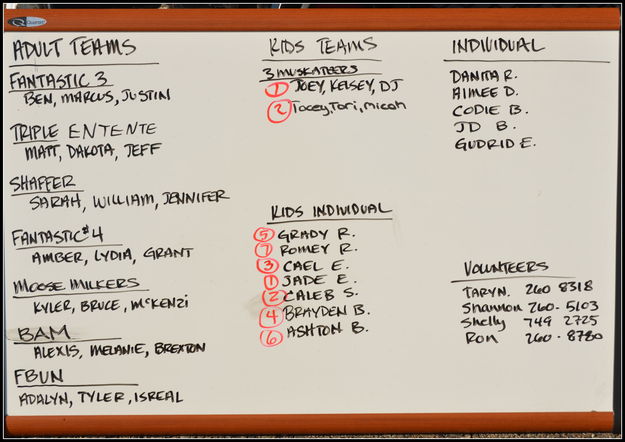 Quartet
ADULT TEAMS
FANTASTIC 3
BEN, MARCUS, JUSTIN
TRIPLE ENTENTE
MATT, DAKOTA, JEFF
SHAFFER
SARAH, WILLIAM, JENNIFER
FANTASTIC #4
AMBER, LYDIA, GRANT
MOOSE MILKERS
KYLER, BRUCE, McKENZI
BAM
ALEXIS, MELANIE, BREXTON
FBUN
ADALYN, TYLER, ISREAL
KIDS TEAMS
3 MUSKATEERS
1 JOEY, KELSEY, DJ
2 Tocey, Tori, Micah
KIDS INDIVIDUAL
5 GRADY R.
7 ROMEY R.
3 CAEL E.
1 JADE E.
2 CALEB S.
4 BRAYDEN B.
6 ASHTON B.
INDIVIDUAL
DANITA R.
AIMEE D.
CODIE B.
JD B.
GUDRID E.
VOLUNTEERS
TARYN. 260 8318
Shannon 260-5103
Shelly 749 2725
Ron 260-8780